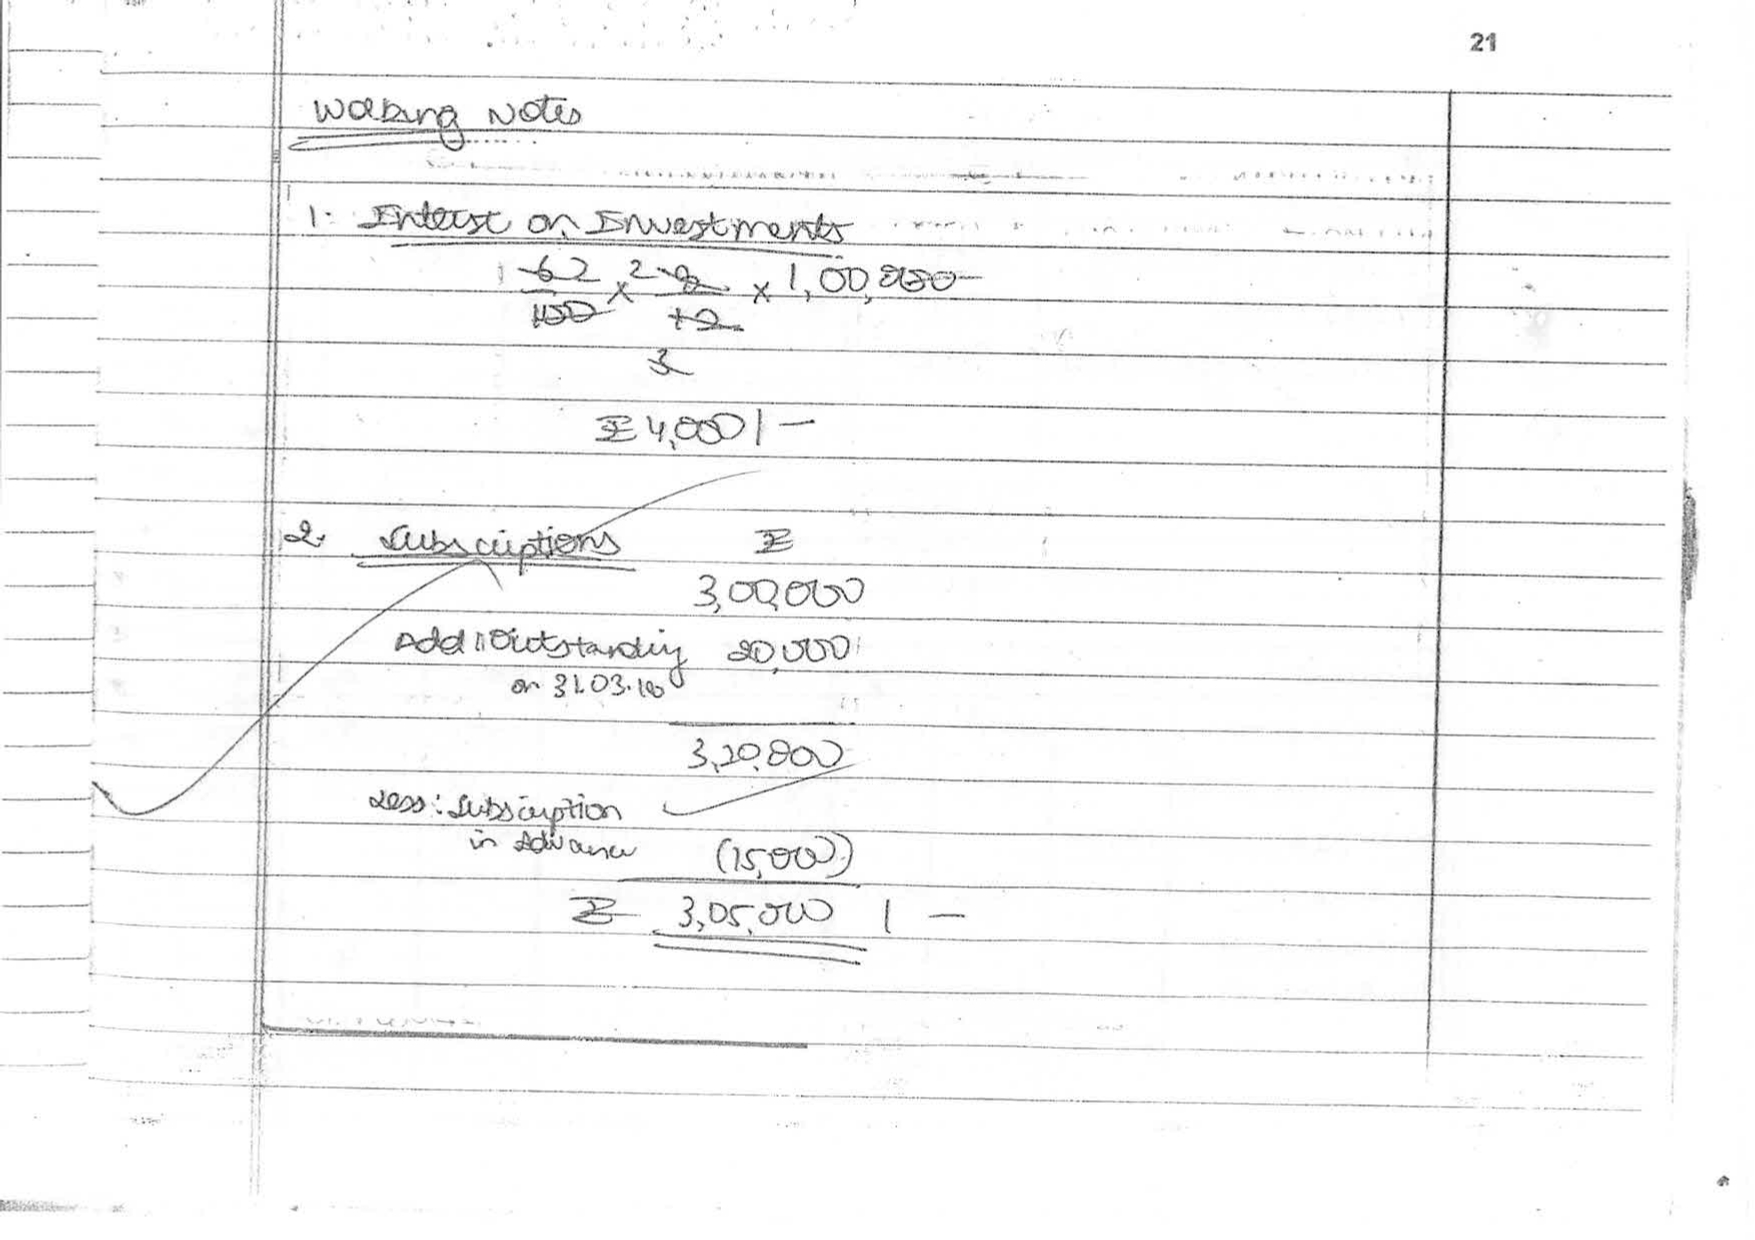 21
Working Notes
1. Interest on Investments
6 2 / 100 × 2 8 / 12 × 1,00,000
3
₹ 4,000/-
2. Subscriptions ₹
3,00,000
Add: Outstanding 20,000
on 31.03.18
3,20,000
Less: Subscription
in Advance (15,000)
₹ 3,05,000 /-